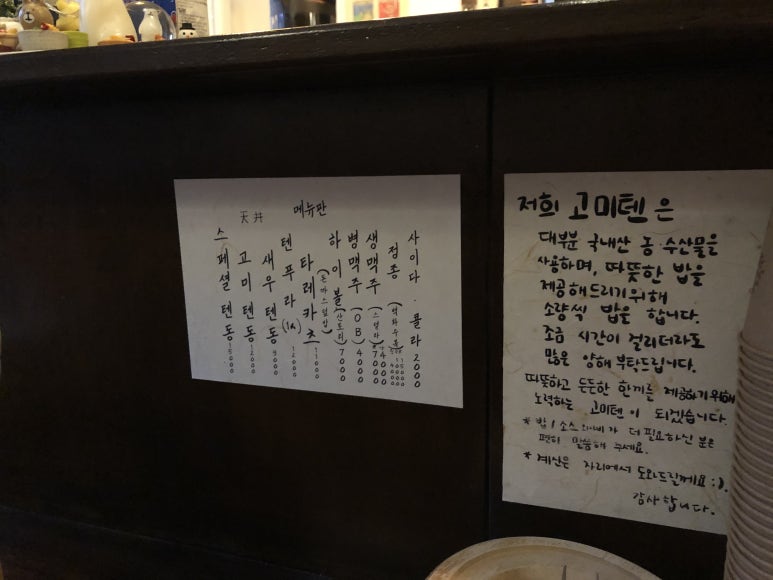 天丼
메뉴판
스페셜 텐동 15000
고미텐동 12000
새우텐동 9000
텐푸라 (1人) 12000
타레카츠 (돈까스덮밥) 11000
하이볼 (산토리) 7000
병맥주 (OB) 4000
생맥주 (스텔라)
정종 (백화수복)
사이다·콜라 2000
저희 고미텐은
대부분 국내산 농·수산물을
사용하며, 따뜻한 밥을
제공해드리기위해
소량씩 밥을 합니다.
조금 시간이 걸리더라도
많은 양해 부탁드립니다.
따뜻하고 든든한 한끼를 제공하기위해
노력하는 고미텐이 되겠습니다.
* 밥 / 소스 와사비가 더 필요하신 분은
편히 말씀해 주세요.
* 계산은 자리에서 도와드릴께요 :).
감사합니다.